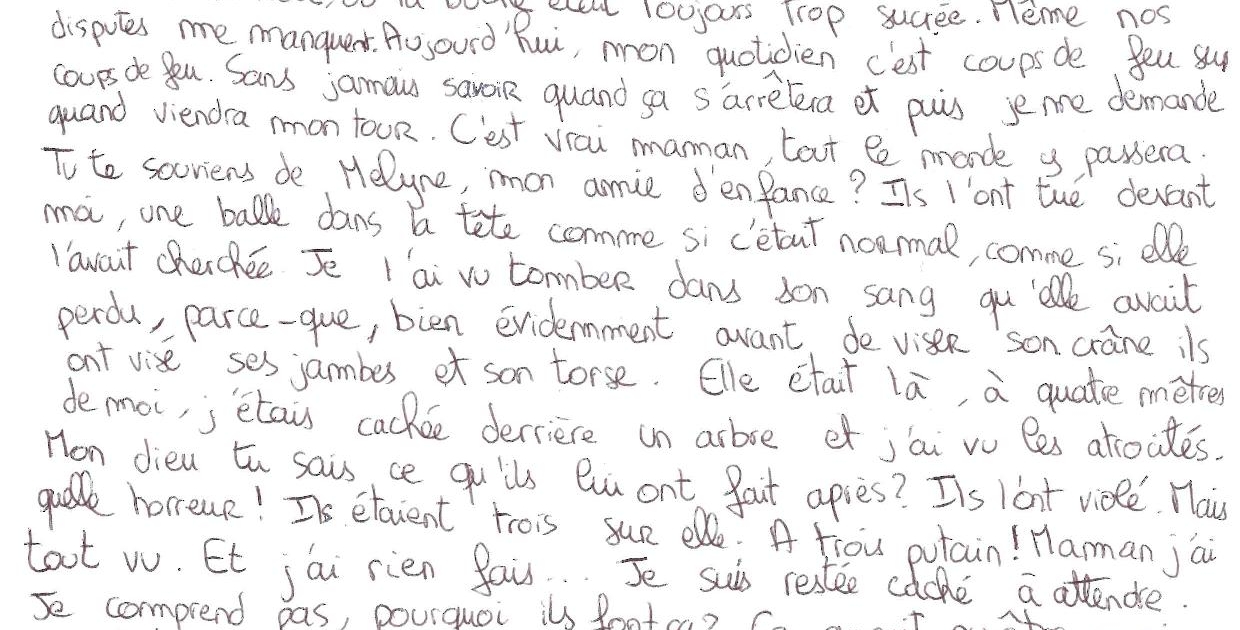 où la bûche était toujours trop sucrée. Même nos
disputes me manquent. Aujourd'hui, mon quotidien c'est coups de feu sur
coups de feu. Sans jamais savoir quand ça s'arrêtera et puis je me demande
quand viendra mon tour. C'est vrai maman, tout le monde y passera.
Tu te souviens de Melyne, mon amie d'enfance ? Ils l'ont tué devant
moi, une balle dans la tête comme si c'était normal, comme si elle
l'avait cherchée. Je l'ai vu tomber dans son sang qu'elle avait
perdu, parce-que, bien évidemment avant de viser son crâne ils
ont visé ses jambes et son torse. Elle était là, à quatre mêtres
de moi, j'étais cachée derrière un arbre et j'ai vu les atrocités.
Mon dieu tu sais ce qu'ils lui ont fait après? Ils l'ont violé. Mais
quelle horreur! Ils étaient trois sur elle. A trois putain! Maman j'ai
tout vu. Et j'ai rien fais... Je suis restée caché à attendre.
Je comprend pas, pourquoi ils font ça?